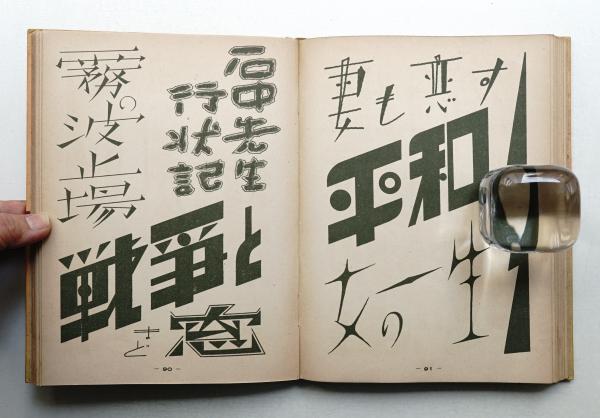 霧の波止場
石中先生
行状記
窓
まど
－90－
妻も恋す
平和！
女の一生
－91－